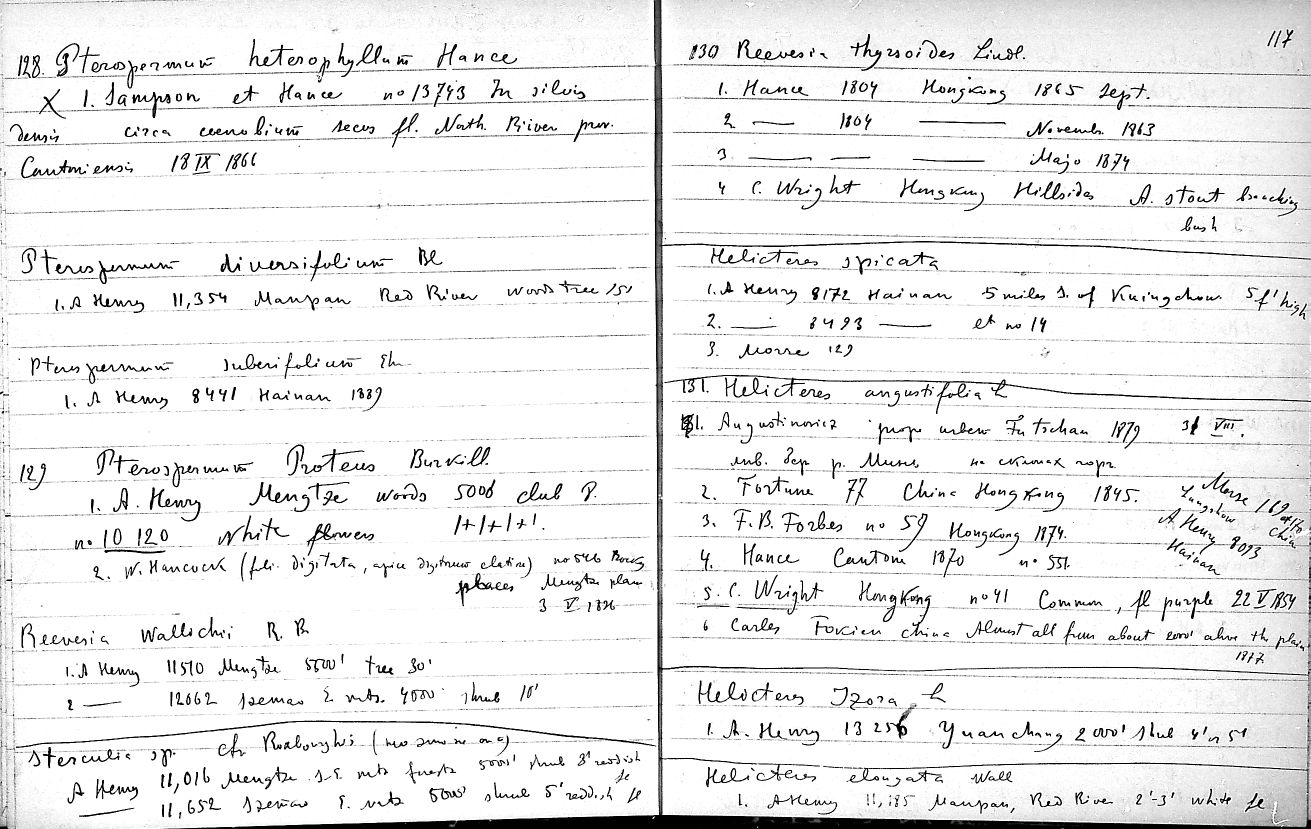 128. Pterospermum heterophyllum Hance
X 1. Sampson et Hance no 13743 In silvis
densis circa coenobium secus fl. North River prov.
Cantoniensis 18 IX 1866
Pterospermum diversifolium Bl
1. A Henry 11,354 Manpan Red River woods tree 15'
Pterospermum suberifolium
1. A Henry 8441 Hainan 1889
129 Pterospermum Proteus Burkill.
1. A. Henry Mengtze woods 5000
no 10 120 white flowers
2. W. Hancock (foli. digitata, apice no 546 Rocky
places Mengtze plain
3 V 1896
Reevesia Wallichii R. B
1. A Henry 11510 Mengtze 5000' tree 30'
2 — 12062 Szemao E mts. 4000' shrub 10'
Sterculia sp. cfr Roxburghii
A Henry 11,016 Mengtze S-E mts forests 5000' shrub 8' reddish fl
— 11,652 Szemao E. mts 5000' shrub 5' reddish fl
117
130 Reevesia thyrsoides Lindl.
1. Hance 1804 Hongkong 1865 Sept.
2 — 1804 — Novembr 1863
3 — — — Majo 1874
4 C. Wright Hongkong Hillsides A. stout branching
bush
Helicteres spicata
1. A Henry 8172 Hainan 5 miles S. of Kiungchow 5 f' high
2. — 8493 — et no 14
3. Morse 129
131. Helicteres angustifolia L
1. Augustinovicz prope urbem Futschau 1879 31 VIII.
лив. бер р. Минь на склонах гор
2. Fortune 77 China Hongkong 1845.
Morse 169
Lungchow China
3. F. B. Forbes no 59 Hongkong 1874.
A Henry 8093
Hainan
4. Hance Canton 1870 no 551.
5. C. Wright Hongkong no 41 Common, fl purple 22 V 1854
6 Carles Fokien China Almost all from about 2000' above the plain
1877
Helicteres Izora L
1. A. Henry 13256 Yuanchang 2000' shrub 4' à 5'
Helicteres elongata Wall
1. A Henry 11,185 Manpan, Red River 2'-3' white fl